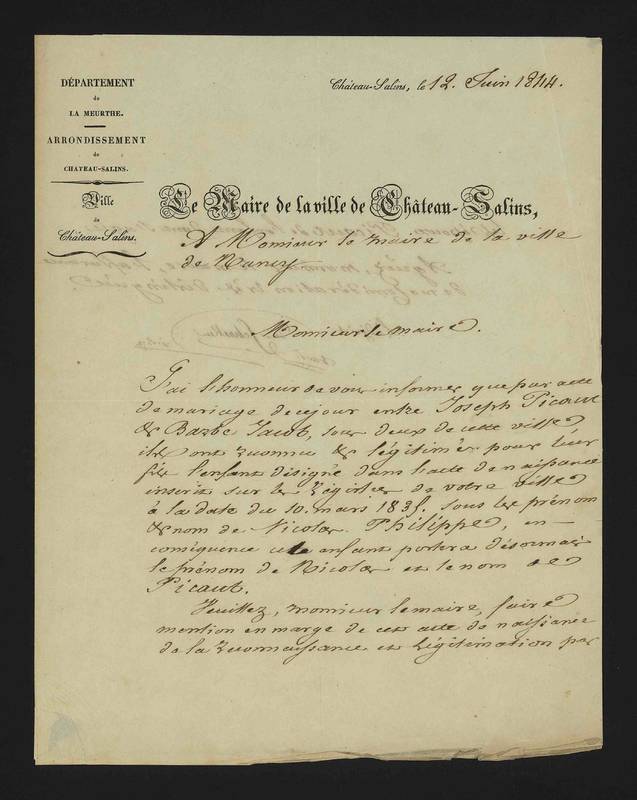 DÉPARTEMENT
de
LA MEURTHE.
ARRONDISSEMENT
de
CHATEAU-SALINS.
Ville
de
Château-Salins.
Château-Salins, le 12. Juin 1844.
Le Maire de la ville de Château-Salins,
A Monsieur le maire de la ville
de Nancy
Monsieur le maire.
J'ai l'honneur de vous informer que par acte
de mariage de ce jour entre Joseph Picaut
& Barbe Jacob, tous deux de cette ville,
ils ont reconnu & légitimé pour leur
fils l'enfant désigné dans l'acte de naissance
inscrit sur les Régistres de votre ville
à la date du 10. mars 1835. sous les prénom
& nom de Nicolas Philippe, en
conséquence cet enfant portera désormais
le prénom de Nicolas et le nom de
Picaut.
Veuillez, monsieur le maire, faire
mention en marge de cet acte de naissance
de la reconnaissance et légitimation par